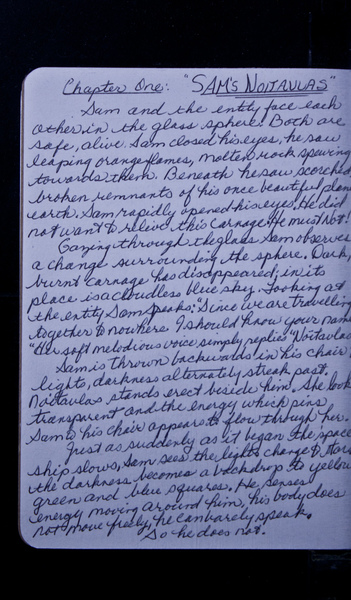 Chapter One: "SAM'S NOITAVLAS"
Sam and the entity face each
other, in the glass sphere. Both are
safe, alive. Sam closed his eyes, he saw
leaping orange flames, molten rock spewing
towards them. Beneath he saw scorched
broken remnants of his once beautiful plan
earth. Sam rapidly opened his eyes. He did
not want to relive this carnage. He must Not!
Gazing through the glass Sam observes
a change surrounding the sphere. Dark,
burnt carnage has disappeared, in its
place is a cloudless blue sky. Looking at
the entity Sam speaks: "Since we are travelling
together to nowhere I should know your name
"Her soft melodious voice simply replies "Noitavlas
Sam is thrown backwards in his chair,
lights, darkness alternately streak past.
Noitavlas stands erect beside him. She look
transparent and the energy which pins
Sam to his chair appears to flow through her.
Just as suddenly as it began the space
ship slows, Sam sees the lights change to
the darkness becomes a backdrop to yellow
green and blue squares. He senses
energy moving around him, his body does
not move freely, he can barely speak.
So he does not.